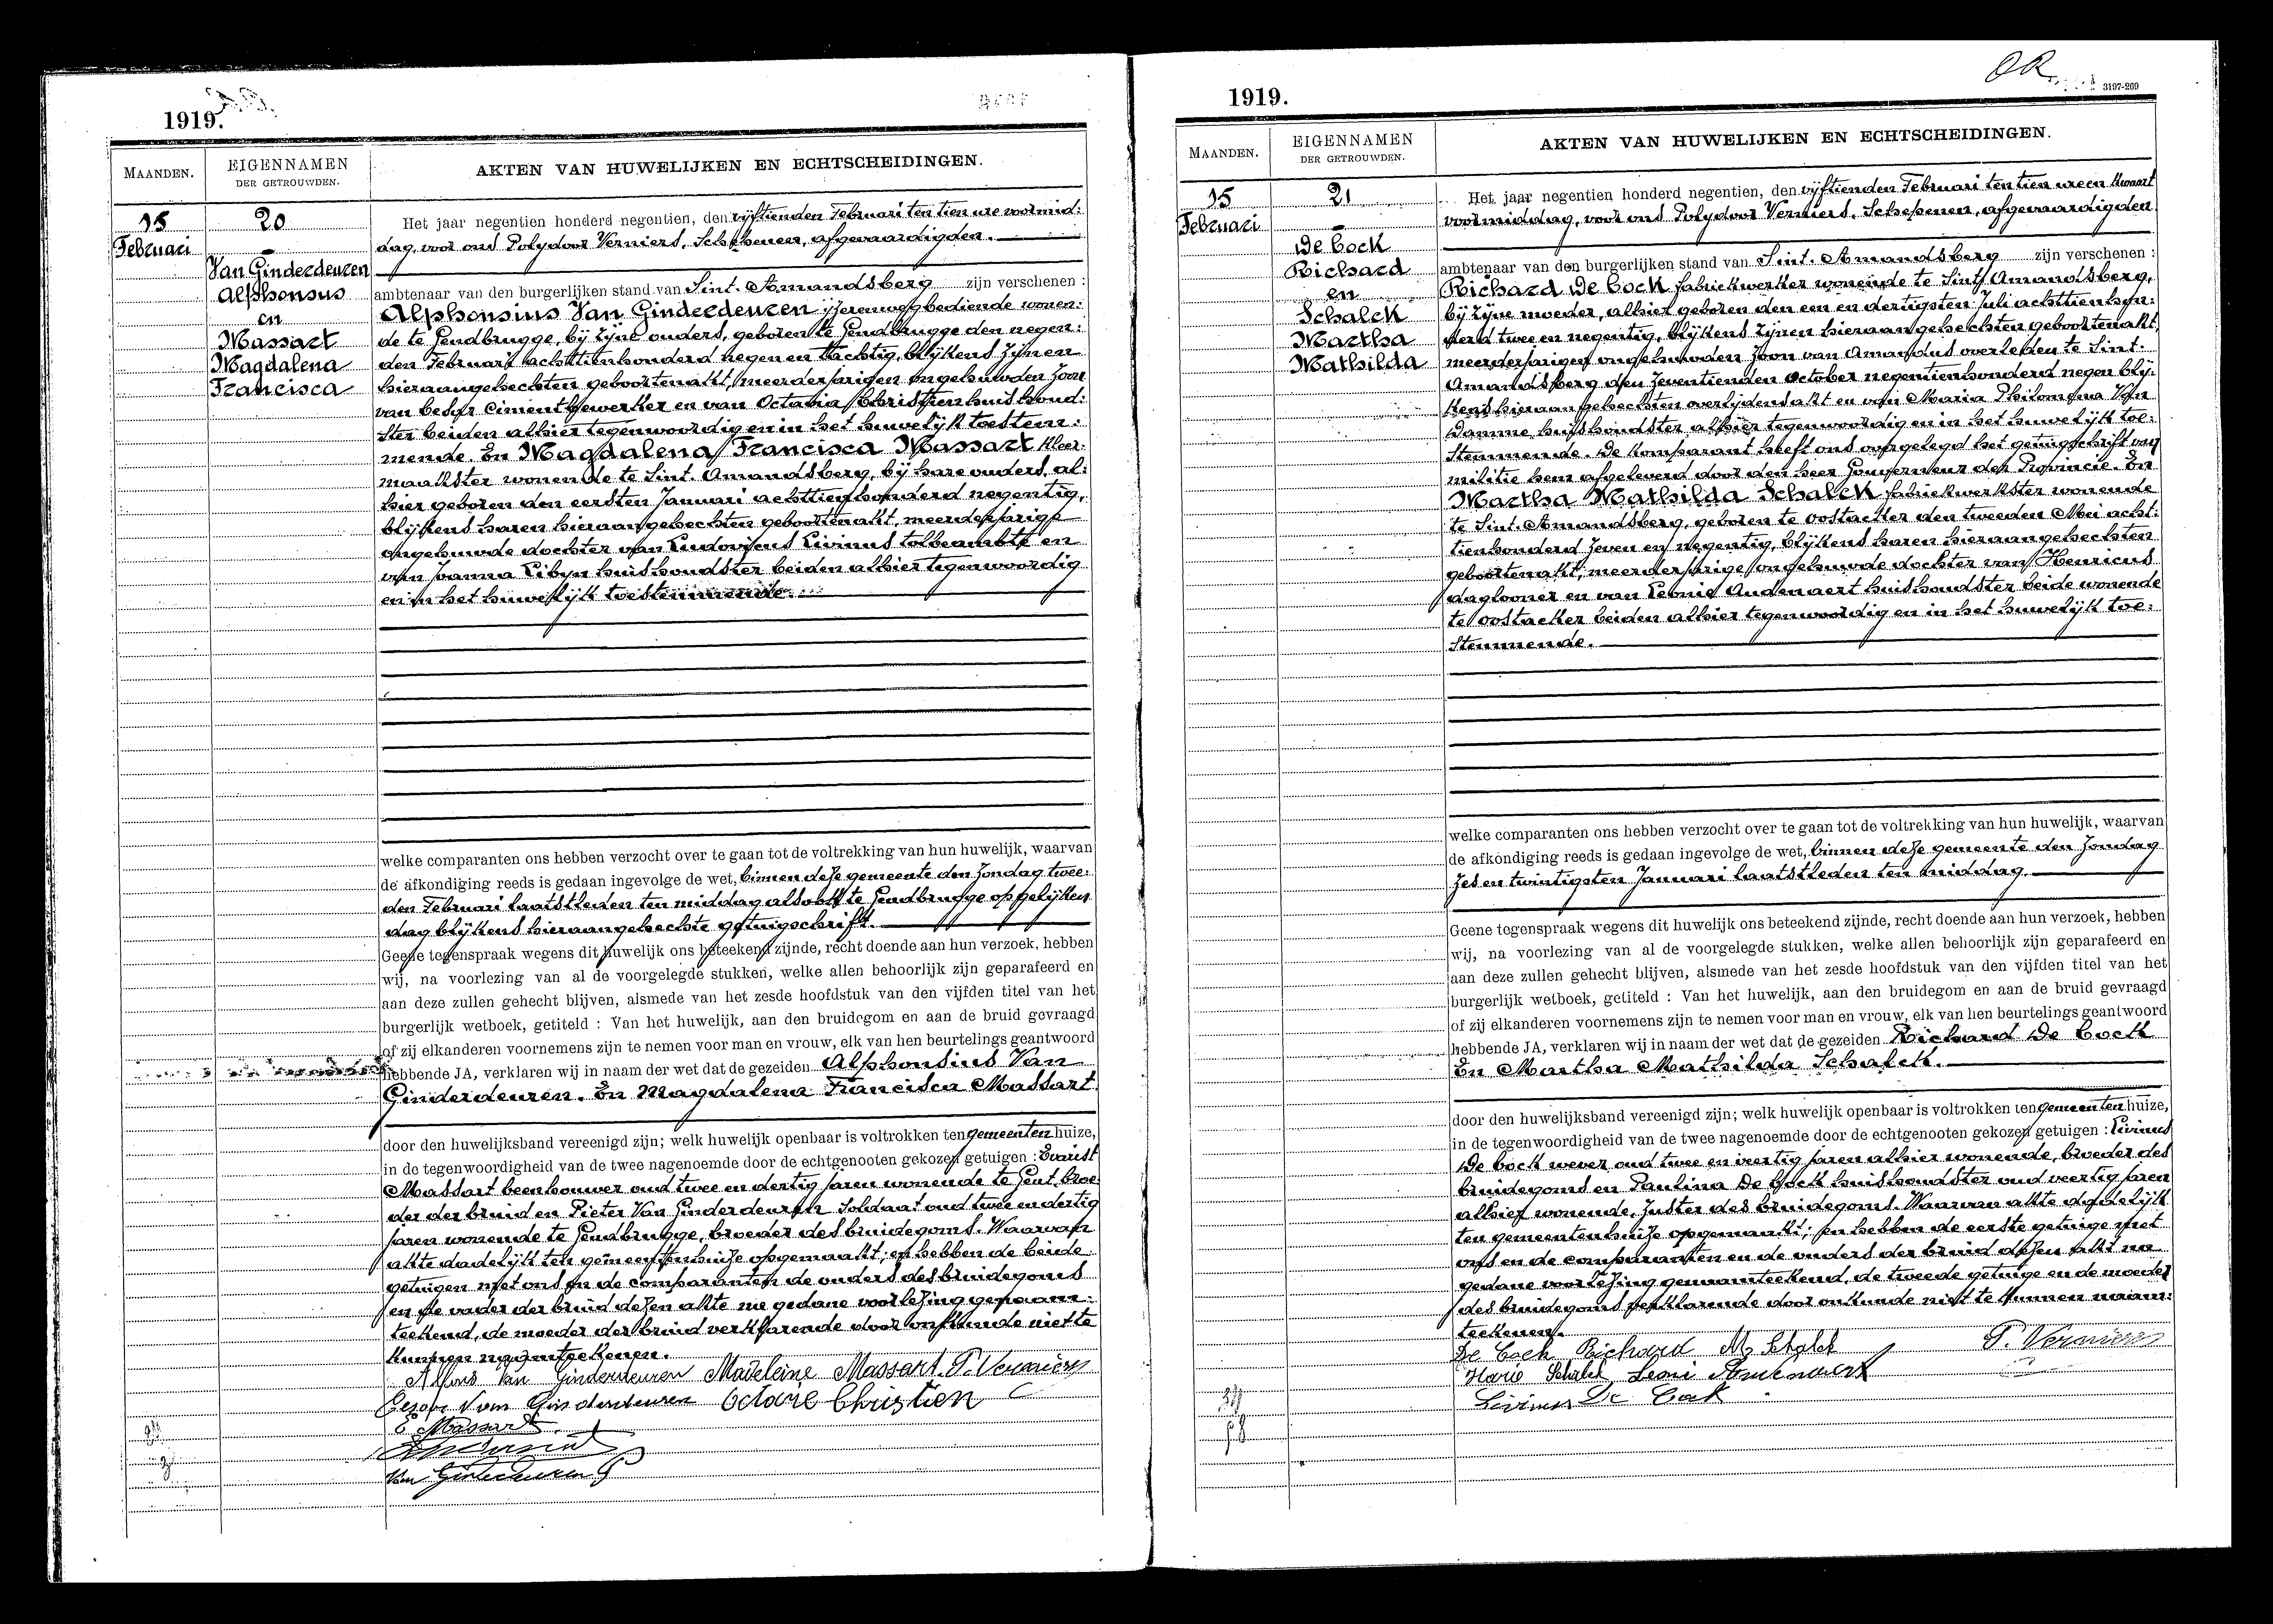 1919.
MAANDEN.
EIGENNAMEN
DER GETROUWDEN.
AKTEN VAN HUWELIJKEN EN ECHTSCHEIDINGEN.
15
Februari
20
Van Ginderdeuren
Alphonsus
en
Massart
Magdalena
Francisca
Het jaar negentien honderd negentien, den vijftienden Februari ten tien ure voormid:
dag, voor ons Polydoor Verniers, Schepenen, afgevaardigden.
ambtenaar van den burgerlijken stand van Sint. Amandsberg zijn verschenen :
Alphonsius Van Ginderdeuren ijzerenwegbediende wonen:
de te Gendbrugge, bij zijne ouders, geboren te Gendbrugge den negen:
den Februari achttienhonderd negen en tachtig, blijkens zijnen
hieraangehechten geboortenakt, meerderjarigen ongehuwden zoon
van Cesar Cimentbewerker en van Octavia Christien huishoud:
ster beiden alhier tegenwoordig en in het huwelijk toestem:
mende. En Magdalena Francisca Massart Kleer:
maakster wonende te Sint. Amandsberg, bij hare ouders, al:
hier geboren den eersten Januari achttienhonderd negentig,
blijkens haren hieraangehechten geboortenakt, meerderjarige
ongehuwde dochter van Ludovicus Livinus tolbeambte en
van Joanna Libyn huishoudster beiden alhier tegenwoordig
en in het huwelijk toestemmende.
welke comparanten ons hebben verzocht over te gaan tot de voltrekking van hun huwelijk, waarvan
de afkondiging reeds is gedaan ingevolge de wet, binnen deze gemeente den Zondag twee:
den Februari laatstleden ten middag alsook te Gendbrugge op gelijken
dag blijkens hieraangehechte getuigschrift.
Geene tegenspraak wegens dit huwelijk ons beteekend zijnde, recht doende aan hun verzoek, hebben
wij, na voorlezing van al de voorgelegde stukken, welke allen behoorlijk zijn geparafeerd en
aan deze zullen gehecht blijven, alsmede van het zesde hoofdstuk van den vijfden titel van het
burgerlijk wetboek, getiteld : Van het huwelijk, aan den bruidegom en aan de bruid gevraagd
of zij elkanderen voornemens zijn te nemen voor man en vrouw, elk van hen beurtelings geantwoord
hebbende JA, verklaren wij in naam der wet dat de gezeiden Alphonsius Van
Ginderdeuren. En Magdalena Francisca Massart
door den huwelijksband vereenigd zijn; welk huwelijk openbaar is voltrokken ten gemeentenhuize,
in de tegenwoordigheid van de twee nagenoemde door de echtgenooten gekozen getuigen : Evarist
Massart beenhouwer oud twee en dertig jaren wonende te Gent, broe
der der bruid en Pieter Van Ginderdeuren Soldaat oud twee en dertig
jaren wonende te Gendbrugge, broeder des bruidegoms. Waarvan
akte dadelijk ten gemeentenhuize opgemaakt; en hebben de beide
getuigen met ons en de comparanten de ouders des bruidegoms
en de vader der bruid dezen akte na gedane voorlezing genaam:
teekend, de moeder der bruid verklarende door onkunde niet te
kunnen naamteekenen.
Alfons Van Ginderdeuren Madeleine Massart. P. Verniers
Cesar Van Ginderdeuren Octavie Christien
E Massart
Van Ginderdeuren P
1919.
OR
3197-269
MAANDEN.
EIGENNAMEN
DER GETROUWDEN.
AKTEN VAN HUWELIJKEN EN ECHTSCHEIDINGEN.
15
Februari
21
De Cock
Richard
en
Schalck
Martha
Mathilda
Het jaar negentien honderd negentien, den vijftienden Februari ten tien ure en kwaart
voormiddag, voor ons Polydoor Verniers, Schepenen, afgevaardigden
ambtenaar van den burgerlijken stand van Sint. Amandsberg zijn verschenen :
Richard De Cock fabriekwerker wonende te Sint Amandsberg,
bij zijne moeder, alhier geboren den een en dertigsten Juli achttienhon:
derd twee en negentig, blijkens zijnen hieraangehechten geboortenakt,
meerderjarigen ongehuwden zoon van Amandus overleden te Sint.
Amandsberg den zeventienden October negentienhonderd negen blij:
kens hieraangehechten overlijdensakt en van Maria Philomena Van
Damme huishoudster alhier tegenwoordig en in het huwelijk toe:
stemmende. De komparant heeft ons voorgelegd het getuigschrift van
militie hem afgeleverd door den heer Gouverneur der Provincie. En
Martha Mathilda Schalck fabriekwerkster wonende
te Sint. Amandsberg, geboren te Oostacker den tweeden Mei acht:
tienhonderd zeven en negentig, blijkens haren hieraangehechten
geboortenakt, meerderjarige ongehuwde dochter van Henricus
daglooner en van Leonie Audenaert huishoudster beide wonende
te Oostacker beiden alhier tegenwoordig en in het huwelijk toe:
stemmende.
welke comparanten ons hebben verzocht over te gaan tot de voltrekking van hun huwelijk, waarvan
de afkondiging reeds is gedaan ingevolge de wet, binnen deze gemeente den Zondag
zes en twintigsten Januari laatstleden ten middag.
Geene tegenspraak wegens dit huwelijk ons beteekend zijnde, recht doende aan hun verzoek, hebben
wij, na voorlezing van al de voorgelegde stukken, welke allen behoorlijk zijn geparafeerd en
aan deze zullen gehecht blijven, alsmede van het zesde hoofdstuk van den vijfden titel van het
burgerlijk wetboek, getiteld : Van het huwelijk, aan den bruidegom en aan de bruid gevraagd
of zij elkanderen voornemens zijn te nemen voor man en vrouw, elk van hen beurtelings geantwoord
hebbende JA, verklaren wij in naam der wet dat de gezeiden Richard De Cock
En Martha Mathilda Schalck.
door den huwelijksband vereenigd zijn; welk huwelijk openbaar is voltrokken ten gemeentenhuize,
in de tegenwoordigheid van de twee nagenoemde door de echtgenooten gekozen getuigen : Livinus
De Cock wever oud twee en veertig jaren alhier wonende, broeder des
bruidegoms en Paulina De Cock huishoudster oud veertig jaren
alhier wonende, zuster des bruidegoms. Waarvan akte dadelijk
ten gemeentenhuize opgemaakt; en hebben de eerste getuige met
ons en de comparanten en de ouders der bruid dezen akt na
gedane voorlezing genaamteekend, de tweede getuige en de moeder
des bruidegoms verklarende door onkunde niet te kunnen naam:
teekenen.
De Cock Richard M. Schalck P. Verniers
Schalck
Livinus De Cock